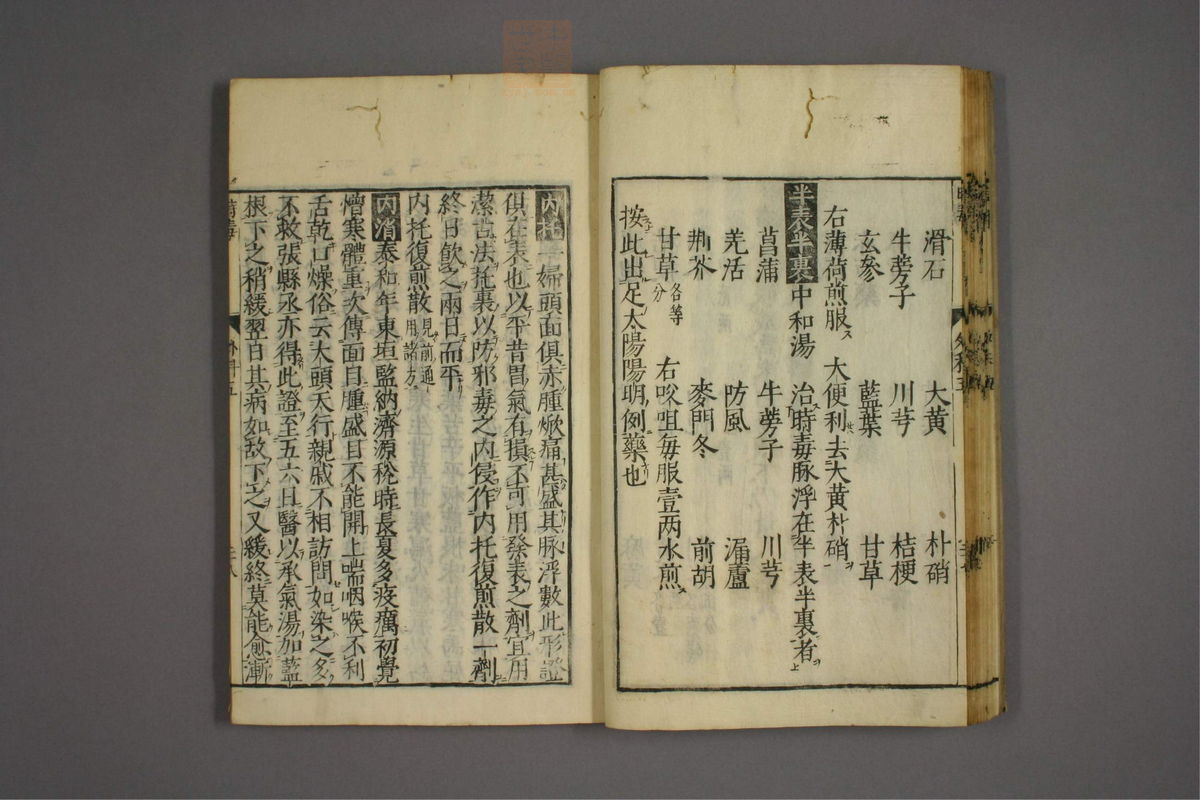 滑石 大黃 朴硝
牛蒡子 川芎 桔梗
玄參 藍葉 甘草
右薄荷煎服ス 大便利去大黃朴硝
半表半裏 中和湯 治時毒脉浮在半表半裏者
菖蒲 牛蒡子 川芎
羌活 防風 漏蘆
荊芥 麥門冬 前胡
甘草各等分 右㕮咀每服壹两水煎
按此出足太陽陽明例藥也
內托一婦頭面俱赤腫焮痛甚盛其脉浮數此形證
俱在表也以平昔胃氣有損不可用發表之劑宜用
潔古法托裏以防邪毒之內侵作內托復煎散一劑
終日飲之兩日而平
內托復煎散見前通用諸方
內消泰和年東垣監納濟源稅時長夏多疫癘初覺
憎寒體重次傳面目腫盛目不能開上喘咽喉不利
舌乾口燥俗云大頭天行親戚不相訪問如染之多
不救張縣丞亦得此證至五六日醫以承氣湯加藍
根下之稍緩翌日其病如故下之又緩終莫能愈漸
外科五